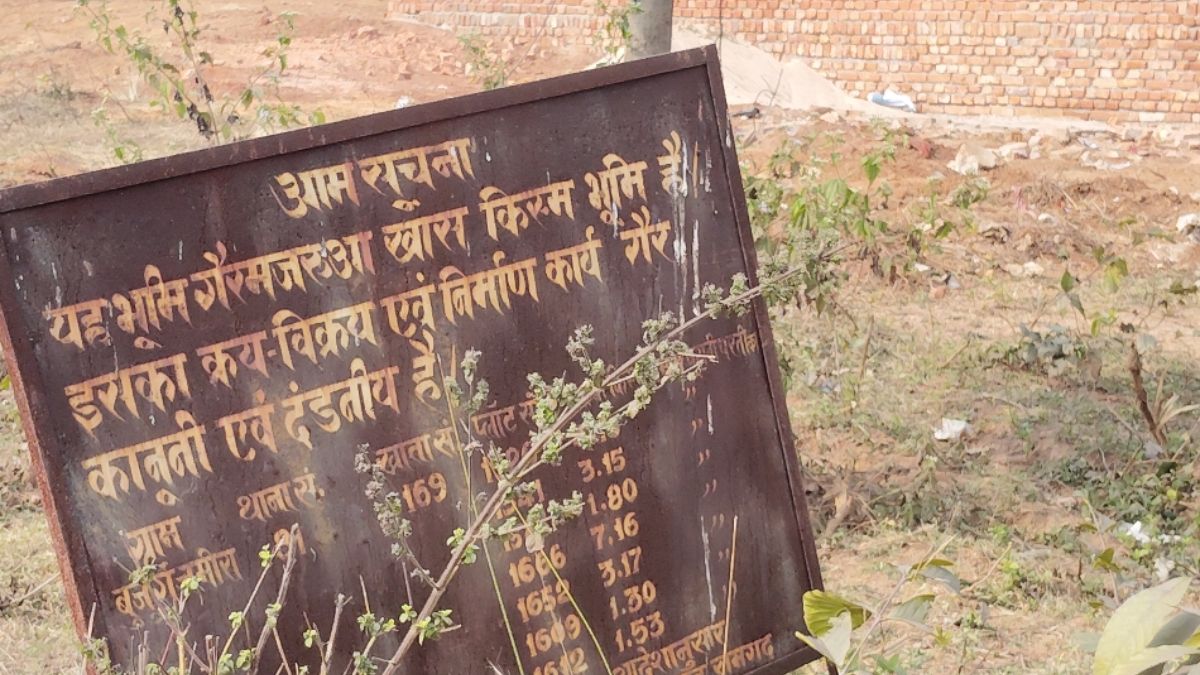 आम सूचना
यह भूमि गैरमजरुआ खास किस्म भूमि है
इसका क्रय-विक्रय एवं निर्माण कार्य गैर
कानूनी एवं दंडनीय है
ग्राम थाना सं. खाता सं प्लाट परतीक
169 3.15 "
1.80 "
7.16 "
1666 3.17 "
1652 1.30
1609 1.53
1612 आदेशानुसार
रामगढ़